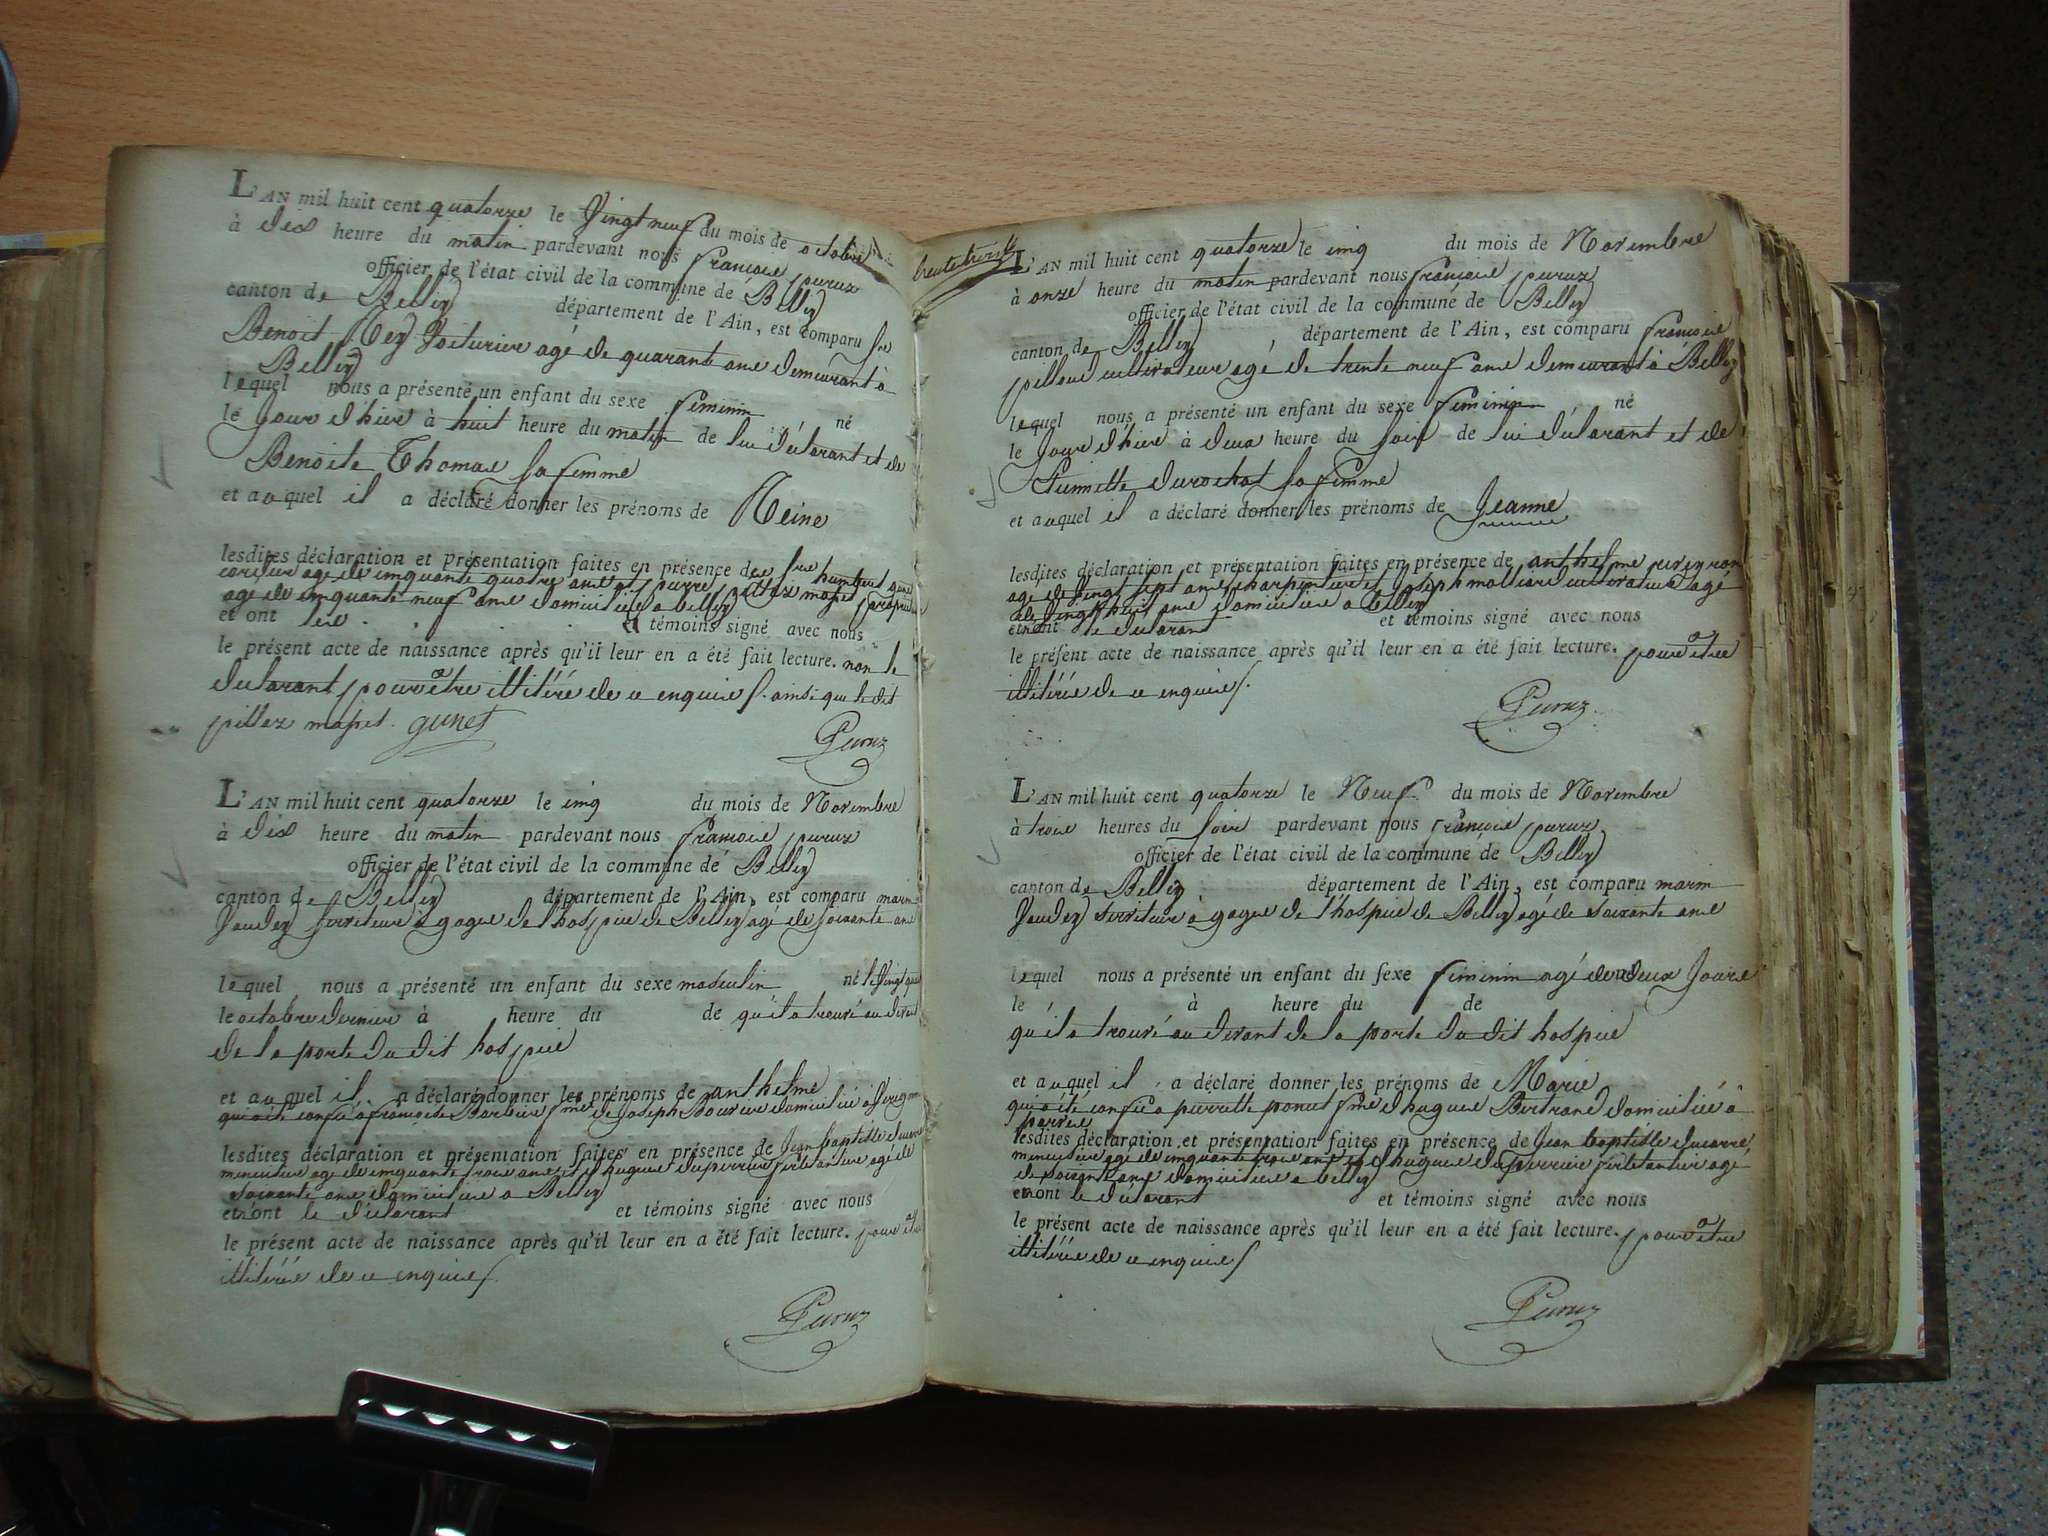 L'AN mil huit cent quatorze le Vingt neuf du mois de octobre
à dix heure du matin pardevant nous françois peruz
officier de l'état civil de la commune de Belley
canton de Belley département de l'Ain, est comparu
Benoit Rey Voiturier agé de quarante ans demeurant à
Belley
lequel nous a présenté un enfant du sexe feminin né
le Jour d'hier à huit heure du matin de lui déclarant et de
Benoite Thomas sa femme
et auquel il a déclaré donner les prénoms de Reine
lesdites déclaration et présentation faites en présence de humbert
agé de cinquante quatre ans et pierre pillaz
agé de cinquante neuf ans domiciliés a belley
et ont et témoins signé avec nous
le présent acte de naissance après qu'il leur en a été fait lecture. non le
declarant pour être illitéré de ce enquis. ainsi que le dit
pillaz gunet
Peruz
L'AN mil huit cent quatorze le cinq du mois de Novembre
à dix heure du matin pardevant nous françois peruz
officier de l'état civil de la commune de Belley
canton de Belley département de l'Ain, est comparu
serviteur à gages de l'hospice de Belley agé de soixante ans
lequel nous a présenté un enfant du sexe masculin né le Vingt
le octobre dernier à heure du de qu'il a trouvé au devant
de la porte du dit hospice
et auquel il a déclaré donner les prénoms de anthelme
qui a été confié a françoise Barbier fme de Joseph domicilié à
lesdites déclaration et présentation faites en présence de Jean baptiste
agé de cinquante trois ans et hugues duperrier agé de
soixante ans domiciliés a Belley
et ont le déclarant et témoins signé avec nous
le présent acte de naissance après qu'il leur en a été fait lecture. pour être
illitérés de ce enquis
Peruz
L'AN mil huit cent quatorze le cinq du mois de Novembre
à onze heure du matin pardevant nous françois peruz
officier de l'état civil de la commune de Belley
canton de Belley département de l'Ain, est comparu françois
cultivateur agé de trente neuf ans demeurant à Belley
lequel nous a présenté un enfant du sexe feminin né
le Jour d'hier à deux heure du soir de lui déclarant et de
durochat sa femme
et auquel il a déclaré donner les prénoms de Jeanne
lesdites déclaration et présentation faites en présence de anthelme
agé de vingt sept ans charpentier et Joseph cultivateur agé
de vingt huit ans domiciliés a Belley
et ont le déclarant et témoins signé avec nous
le présent acte de naissance après qu'il leur en a été fait lecture. pour être
illitérés de ce enquis.
Peruz
L'AN mil huit cent quatorze le Neuf du mois de Novembre
à trois heures du soir pardevant nous françois peruz
officier de l'état civil de la commune de Belley
canton de Belley département de l'Ain, est comparu
serviteur à gages de l'hospice de Belley agé de soixante ans
lequel nous a présenté un enfant du sexe feminin agé de deux Jours
le à heure du de
qu'il a trouvé au devant de la porte du dit hospice
et auquel il a déclaré donner les prénoms de Marie
qui a été confié a pierrette fme d'hugues Bertrand domicilié à
lesdites déclaration et présentation faites en présence de Jean baptiste
agé de cinquante trois ans et hugues duperrier agé
de soixante ans domiciliés a belley
et ont le déclarant et témoins signé avec nous
le présent acte de naissance après qu'il leur en a été fait lecture. pour être
illitérés de ce enquis
Peruz